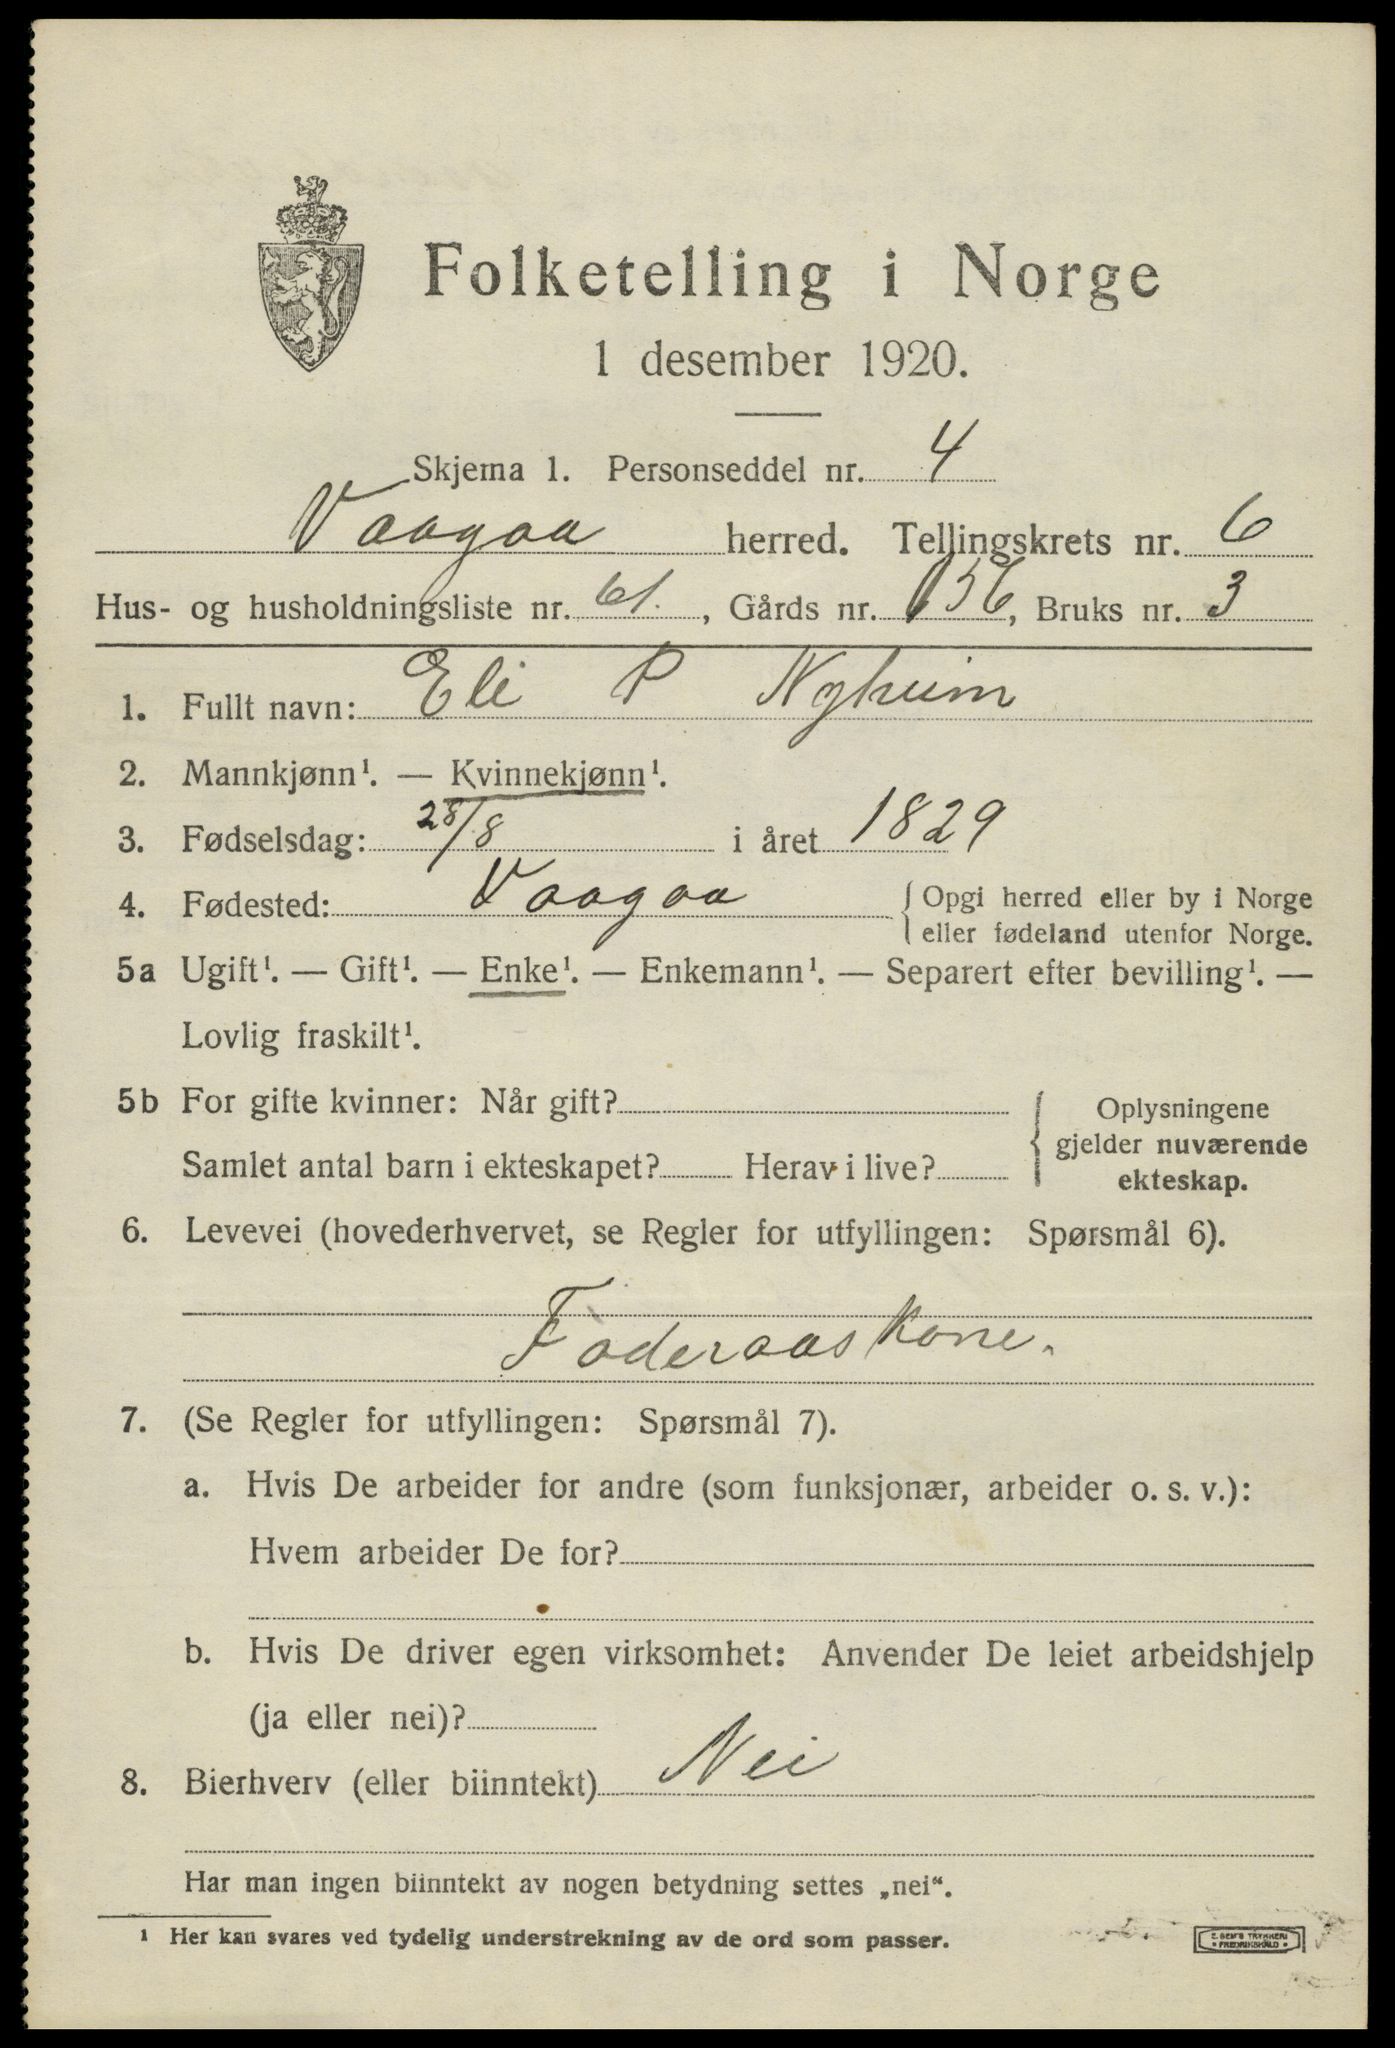 Folketelling i Norge
1 desember 1920.
Skjema 1. Personseddel nr. 4
Vaagaa herred. Tellingskrets nr. 6
Hus- og husholdningsliste nr. 61., Gårds nr. 156, Bruks nr. 3
1. Fullt navn: Eli P Nyheim
2. Mannkjønn¹. — Kvinnekjønn¹.
3. Fødselsdag: 28/8 i året 1829
4. Fødested: Vaagaa { Opgi herred eller by i Norge
eller fødeland utenfor Norge.
5a Ugift¹. — Gift¹. — Enke¹. — Enkemann¹. — Separert efter bevilling¹. —
Lovlig fraskilt¹.
5b For gifte kvinner: Når gift?
Samlet antal barn i ekteskapet? Herav i live?
{ Oplysningene
gjelder nuværende
ekteskap.
6. Levevei (hovederhvervet, se Regler for utfyllingen: Spørsmål 6).
Foderaaskone.
7. (Se Regler for utfyllingen: Spørsmål 7).
a. Hvis De arbeider for andre (som funksjonær, arbeider o. s. v.):
Hvem arbeider De for?
b. Hvis De driver egen virksomhet: Anvender De leiet arbeidshjelp
(ja eller nei)?
8. Bierhverv (eller biinntekt) Nei
Har man ingen biinntekt av nogen betydning settes „nei“.
¹ Her kan svares ved tydelig understrekning av de ord som passer.
E. SEM'S TRYKKERI
• FREDRIKSHALD •